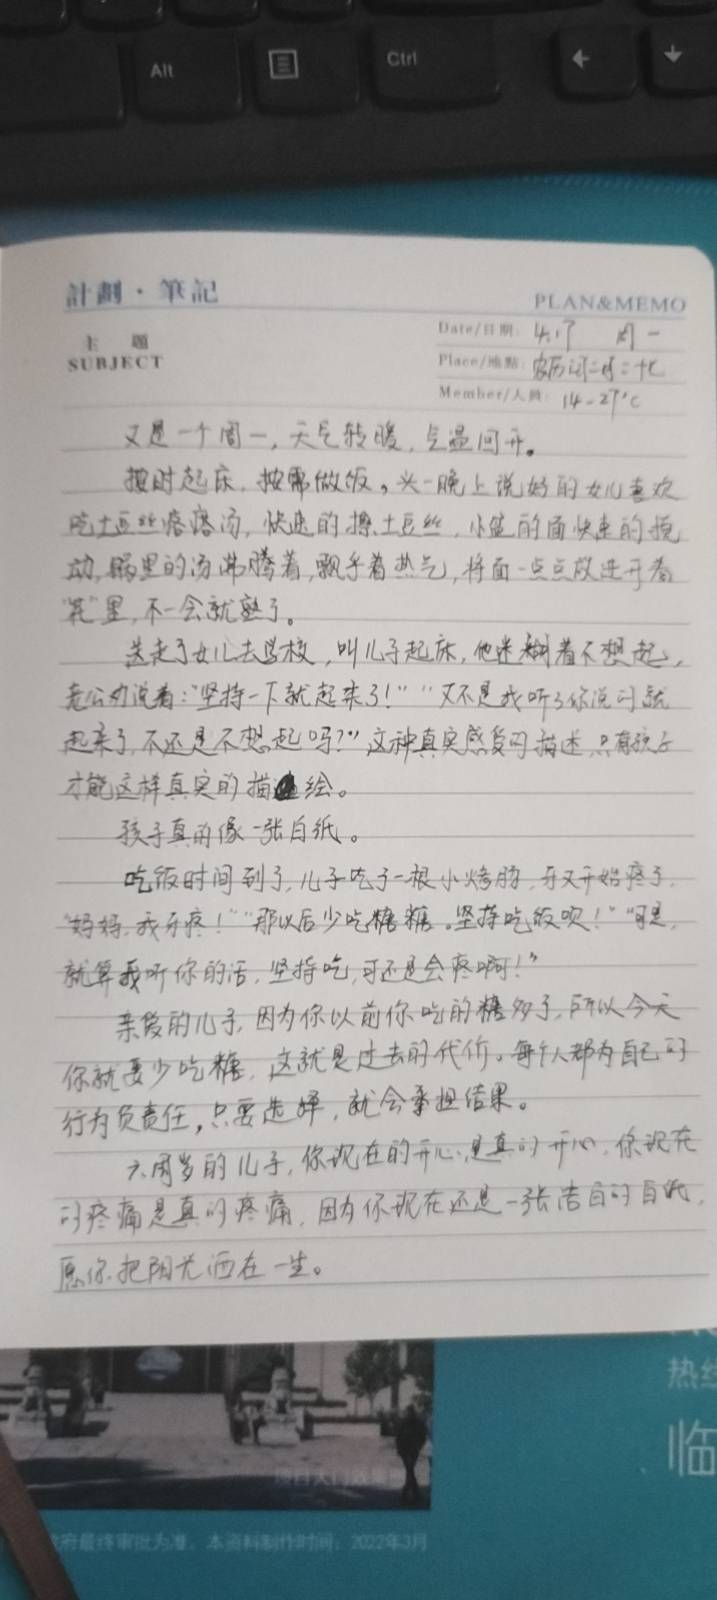 Alt
Ctrl
計劃·筆記
PLAN&MEMO
主 題
SUBJECT
Date/日期: 4.17 周一
Place/地點: 农历闰二月二十七
Member/人員: 14-27℃
又是一个周一，天气转暖，气温回升。
按时起床，按需做饭，头一晚上说好的女儿喜欢
吃土豆丝疙瘩汤，快速的擦土豆丝，小盆的面快速的搅
动，锅里的汤沸腾着，飘乎着热气，将面一点点放进开着
“花”里，不一会就熟了。
送走了女儿去学校，叫儿子起床，他迷糊着不想起，
老公劝说着：“坚持一下就起来了！”“又不是我听了你说的就
起来了，不还是不想起吗？”这种真实感受的描述，只有孩子
才能这样真实的描绘。
孩子真的像一张白纸。
吃饭时间到了，儿子吃了一根小烤肠，牙又开始疼了，
“妈妈，我牙疼！”“那以后少吃糖糖。坚持吃饭吹！”“可是，
就算我听你的话，坚持吃，可还是会疼啊！”
亲爱的儿子，因为你以前你吃的糖多了，所以今天
你就要少吃糖，这就是过去的代价。每个人都为自己的
行为负责任，只要选择，就会承担结果。
六周岁的儿子，你现在的开心是真的开心，你现在
的疼痛是真的疼痛，因为你现在还是一张洁白的白纸，
愿你把阳光洒在一生。
热线
临
项目大门效果
政府最终审批为准。本资料制作时间：2022年3月